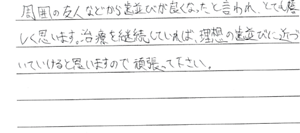 周囲の友人などから歯並びが良くなったと言われ、とても嬉
しく思います。治療を継続していれば、理想の歯並びに近づ
いていけると思いますので頑張って下さい。